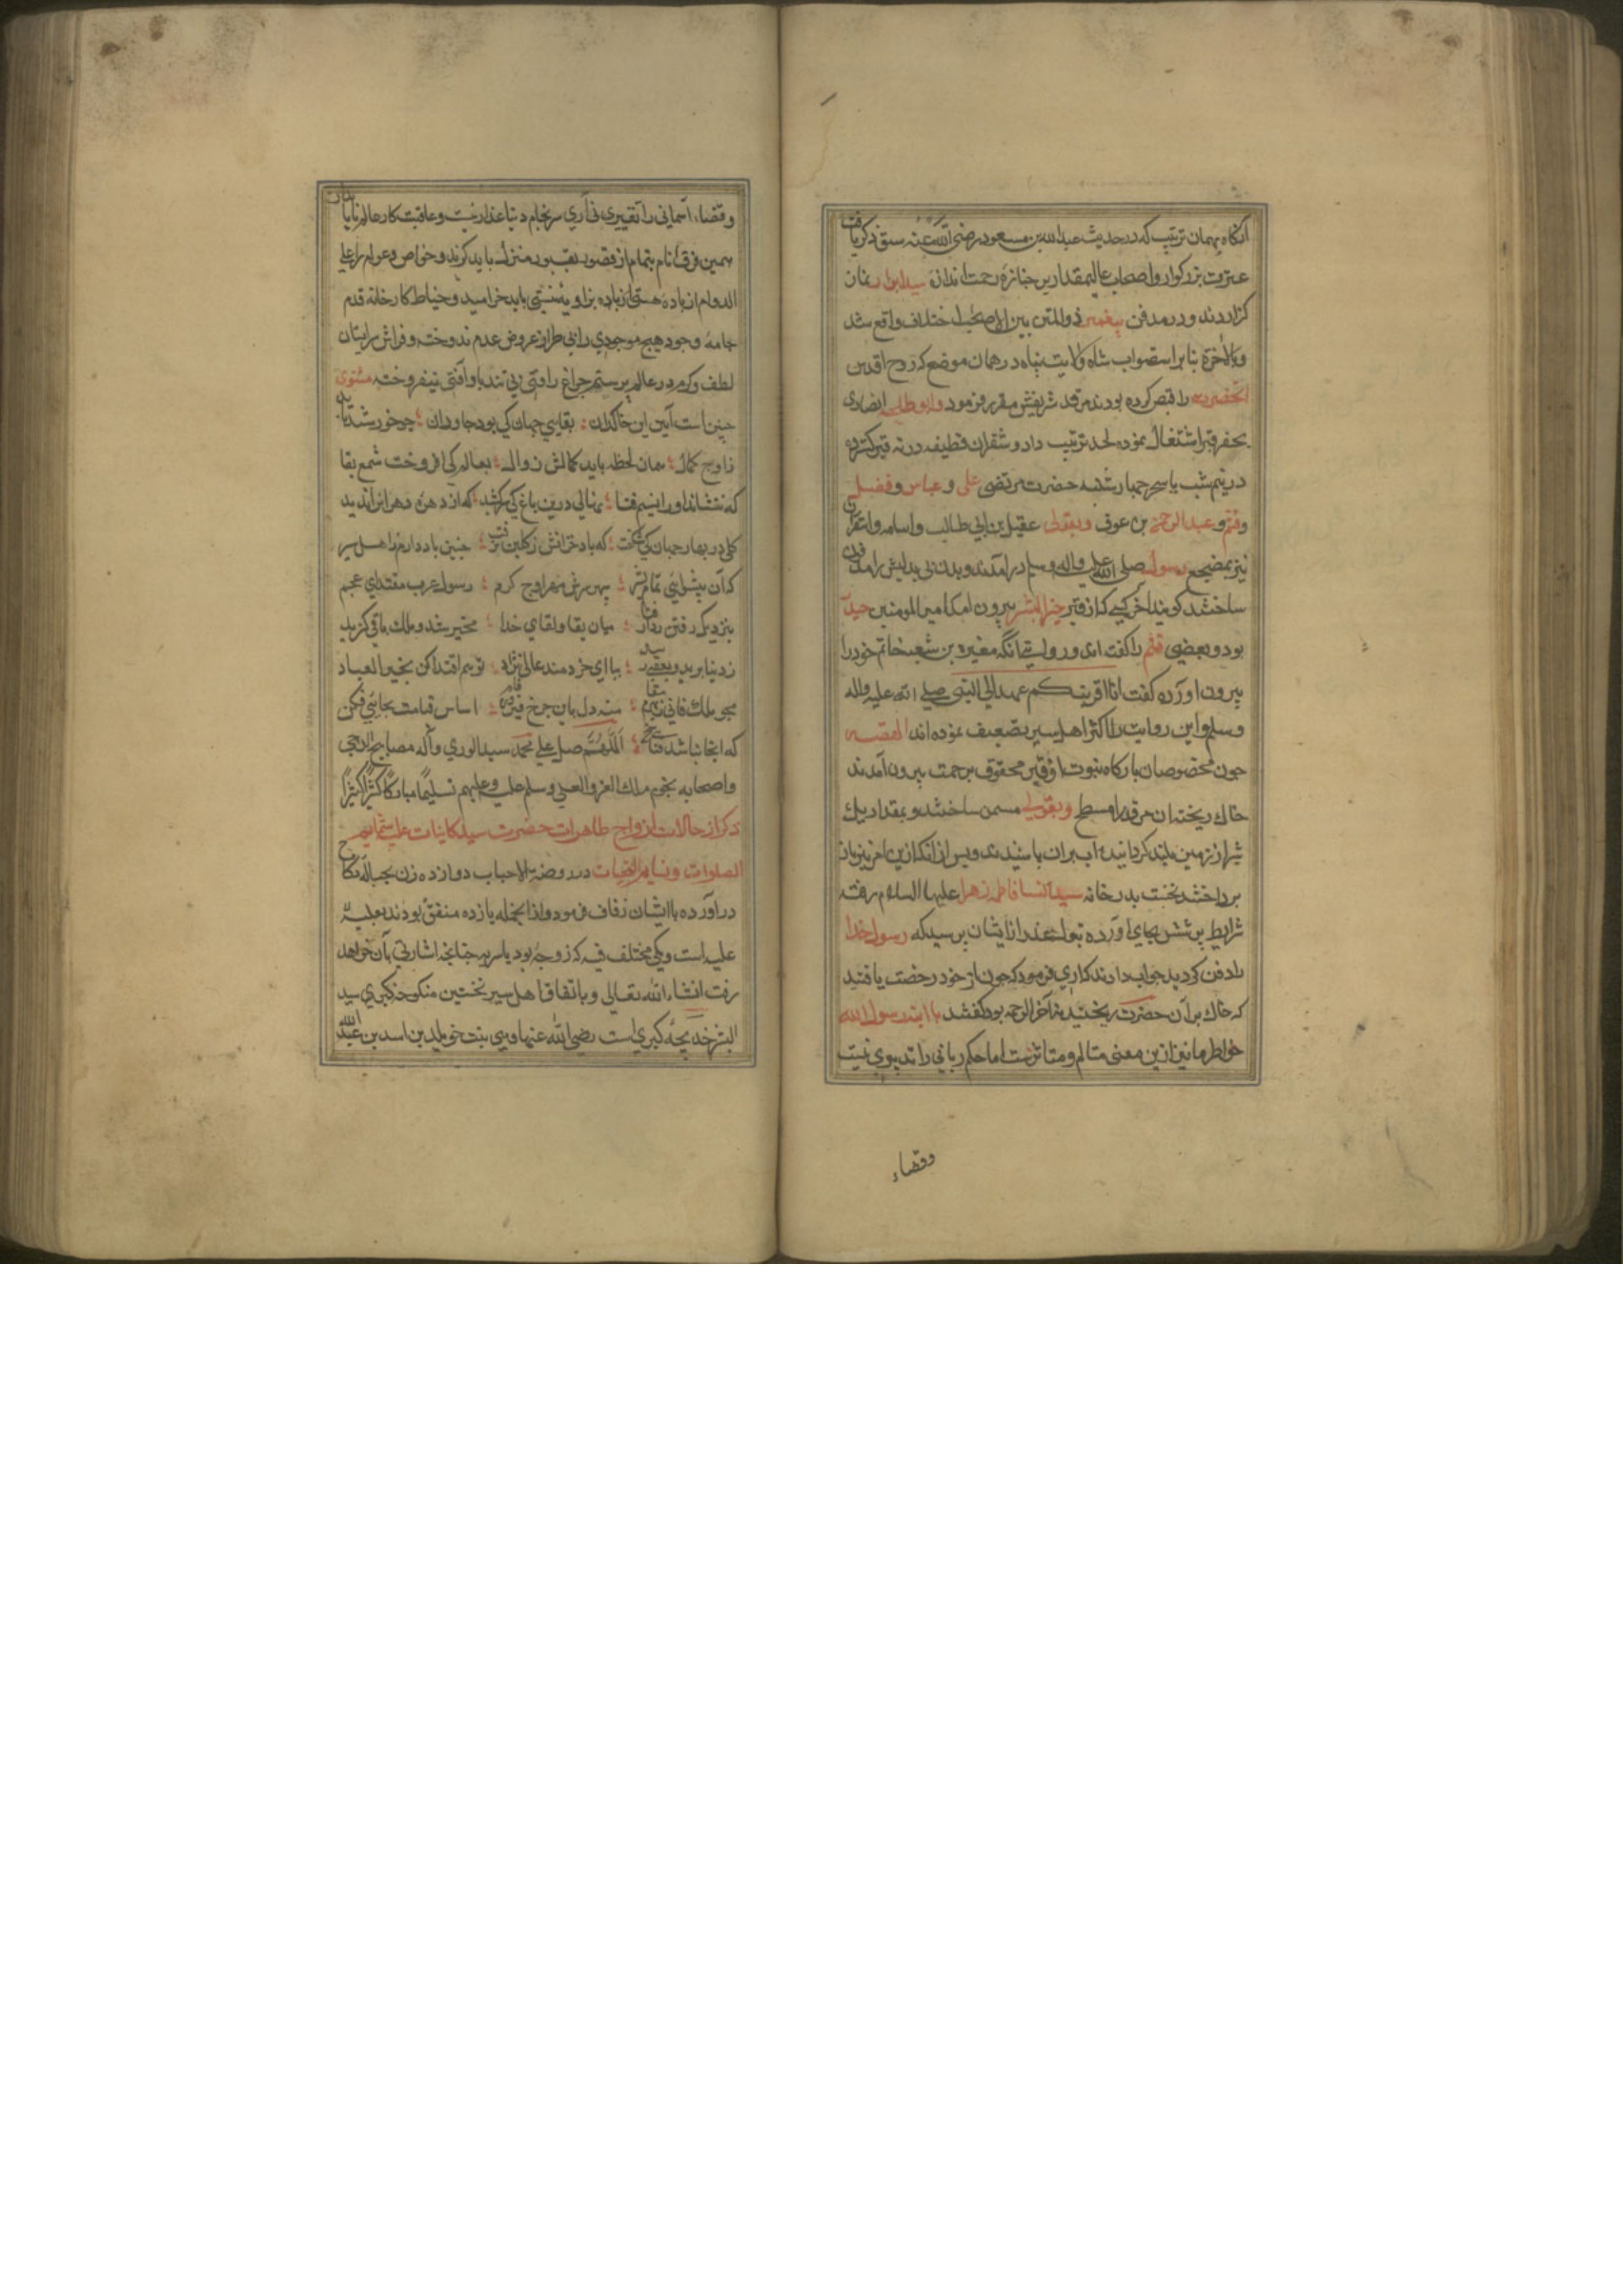 انگاه بهمان ترتیب که در حدیث عبدالله بن مسعود رضی الله عنه سبق ذکر یافت
عترت بزرکوار و اصحاب عالیمقدار بر جنازه رحمت اندازه سید ابرار نماز
کزاردند و در مدفن پیغمبر ذوالمنن بین الاصحاب اختلاف واقع شد
وبالاخرة بنا بر استصواب شاه ولایت پناه در همان موضع که روح اقدس
انحضرت را قبض کرده بودند مرقد شریفش مقرر فرمود وابو طلحه انصاری
بحفر قبر اشتغال نموده لحد ترتیب داد و شقران قطیفه در ته قبر کسترده
در نیم شب یا سحر چهارشنبه حضرت مرتضی علی و عباس و فضل
وقثم و عبدالرحمن بن عوف و بقولی عقیل بن ابی طالب واسامه و
نیز بمضجع رسول صلی الله علیه واله وسلم درامدند و بدن بی بدلیش را مدفون
ساختند کویند اخر کسی که از قبر خیر البشر بیرون امد امیر المومنین حیدر
بود و بعضی قثم را کفته اند و روایتی انکه مغیره بن شعبه خاتم خود را
بیرون اورده کفت انا اقربکم عهدا الی النبی صلی الله علیه واله
وسلم واین روایت را اکثر اهل سیر تضعیف نموده اند القصه
چون مخصوصان بارکاه نبوت از قبر محفوف برحمت بیرون آمدند
خاک ریخته ان مرقد را مسطح و بقولی مسنم ساختند و بمقدار یک
شبر از زمین بلند کردانیده اب بران پاشیدند و پس از انکه ازین امر نیز باز
پرداختند نخست بدر خانه سیدة النسا فاطمه زهرا علیها السلام رفته
شرایط پرسش بجای اورده بتول عذرا از ایشان پرسید که رسول خدا
را دفن کردید جواب دادند که اری فرمود که چون از خود رخصت یافتید
که خاک بر آن حضرت ریختید نه آخر الرحمه بود کفتند یا ابنة رسول الله
خواطر ما نیز ازین معنی متالم و متاثرست اما حکم ربانی را تدبیری نیست
وقضاء
وقضاء اسمانی را تغییری نی آری سرنجام دنیا غدار نیست و عاقبت کار عالم ناپایدار
همین فرق انام بتمام از قصور بقبور منزل باید کزید و خواص و عوام را علی
الدوام از باده هستی بزاویه نیستی باید خرامید و خیاط کارخانه قدم
جامه وجود هیچ موجودی را بی طراز عروض عدم ندوخته و فراش سرابستان
لطف و کرم در عالم پر ستم چراغ راحتی بی تندباد آفتی نیفروخته مثنوی
چنین است آیین این خاکدان ؛ بقایی جهان کی بود جاودان ؛ چو خورشید تابد
ز اوج کمال ؛ همان لحظه باید کمالش زوال ؛ بعالم کی افروخت شمع بقا
که ننشاند او را نسیم فنا ؛ نهالی درین باغ کی سر کشید ؛ که از دهره دهر اره ندید
کلی در بهار جهان کی شکفت ؛ که باد خزانش ز کلبن نرفت ؛ چنین یاد دارم ز اهل سیر
که آن پیشوایی تمام بشر ؛ سپهر شرف مهر اوج کرم ؛ رسول عرب مقتدای عجم
بنزدیک رفتن ز دار فنا ؛ میان بقا و لقای خدا ؛ مخیر شد و ملک باقی کزید
ز دنیا برید و بعقبی رسید ؛ بیا ای خردمند عالی نژاد ؛ تو هم اقتدا کن بخیر العباد
مجو ملک فانی بقا ؛ منه دل باین چرخ فیروزه فام ؛ اساس قیامت بجایی فکن
که انجا نباشد فنا ؛ اللهم صل علی محمد سید الوری وآله مصابیح الدجی
واصحابه نجوم ملک العز والعلی وسلم علیه وعلیهم تسلیما مبارکا کثیرا کثیرا
ذکر از حالات ازواج طاهرات حضرت سید کاینات علیه شمایم
الصلوات ونسایم التحیات در روضة الاحباب دوازده زن بحباله نکاح
درآورده با ایشان زفاف فرمود و از انجمله یازده متفق بودند بعلیه
علیه است و یکی مختلف فیه که زوجه بود یا سریه چنانچه اشارتی بآن خواهد
رفت انشاء الله تعالی و باتفاق اهل سیر نخستین منکوحه کبری سید
البشر خدیجه کبری است رضی الله عنها وهی بنت خویلد بن اسد بن عبد الله